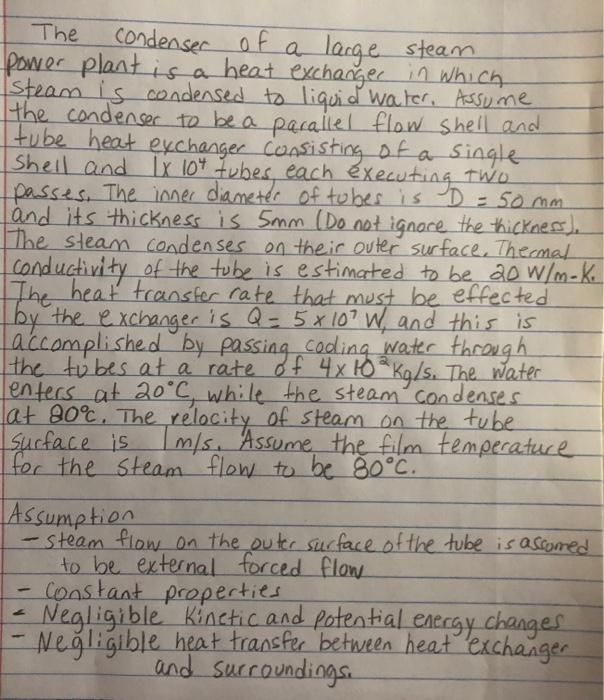 The condenser of a large steam
power plant is a heat exchanger in which
steam is condensed to liquid water. Assume
the condenser to be a parallel flow shell and
tube heat exchanger consisting of a single
shell and 1x 10⁴ tubes each executing two
passes. The inner diameter of tubes is D = 50 mm
and its thickness is 5mm (Do not ignore the thickness).
The steam condenses on their outer surface. Thermal
conductivity of the tube is estimated to be 20 W/m-K.
The heat transfer rate that must be effected
by the exchanger is Q = 5 x 10⁷ W, and this is
accomplished by passing cooling water through
the tubes at a rate of 4x 10² Kg/s. The water
enters at 20°C, while the steam condenses
at 80°C. The velocity of steam on the tube
surface is 1 m/s. Assume the film temperature
for the steam flow to be 80°C.
Assumption
- steam flow on the outer surface of the tube is assumed
to be external forced flow
- Constant properties
- Negligible Kinetic and potential energy changes
- Negligible heat transfer between heat exchanger
and surroundings.